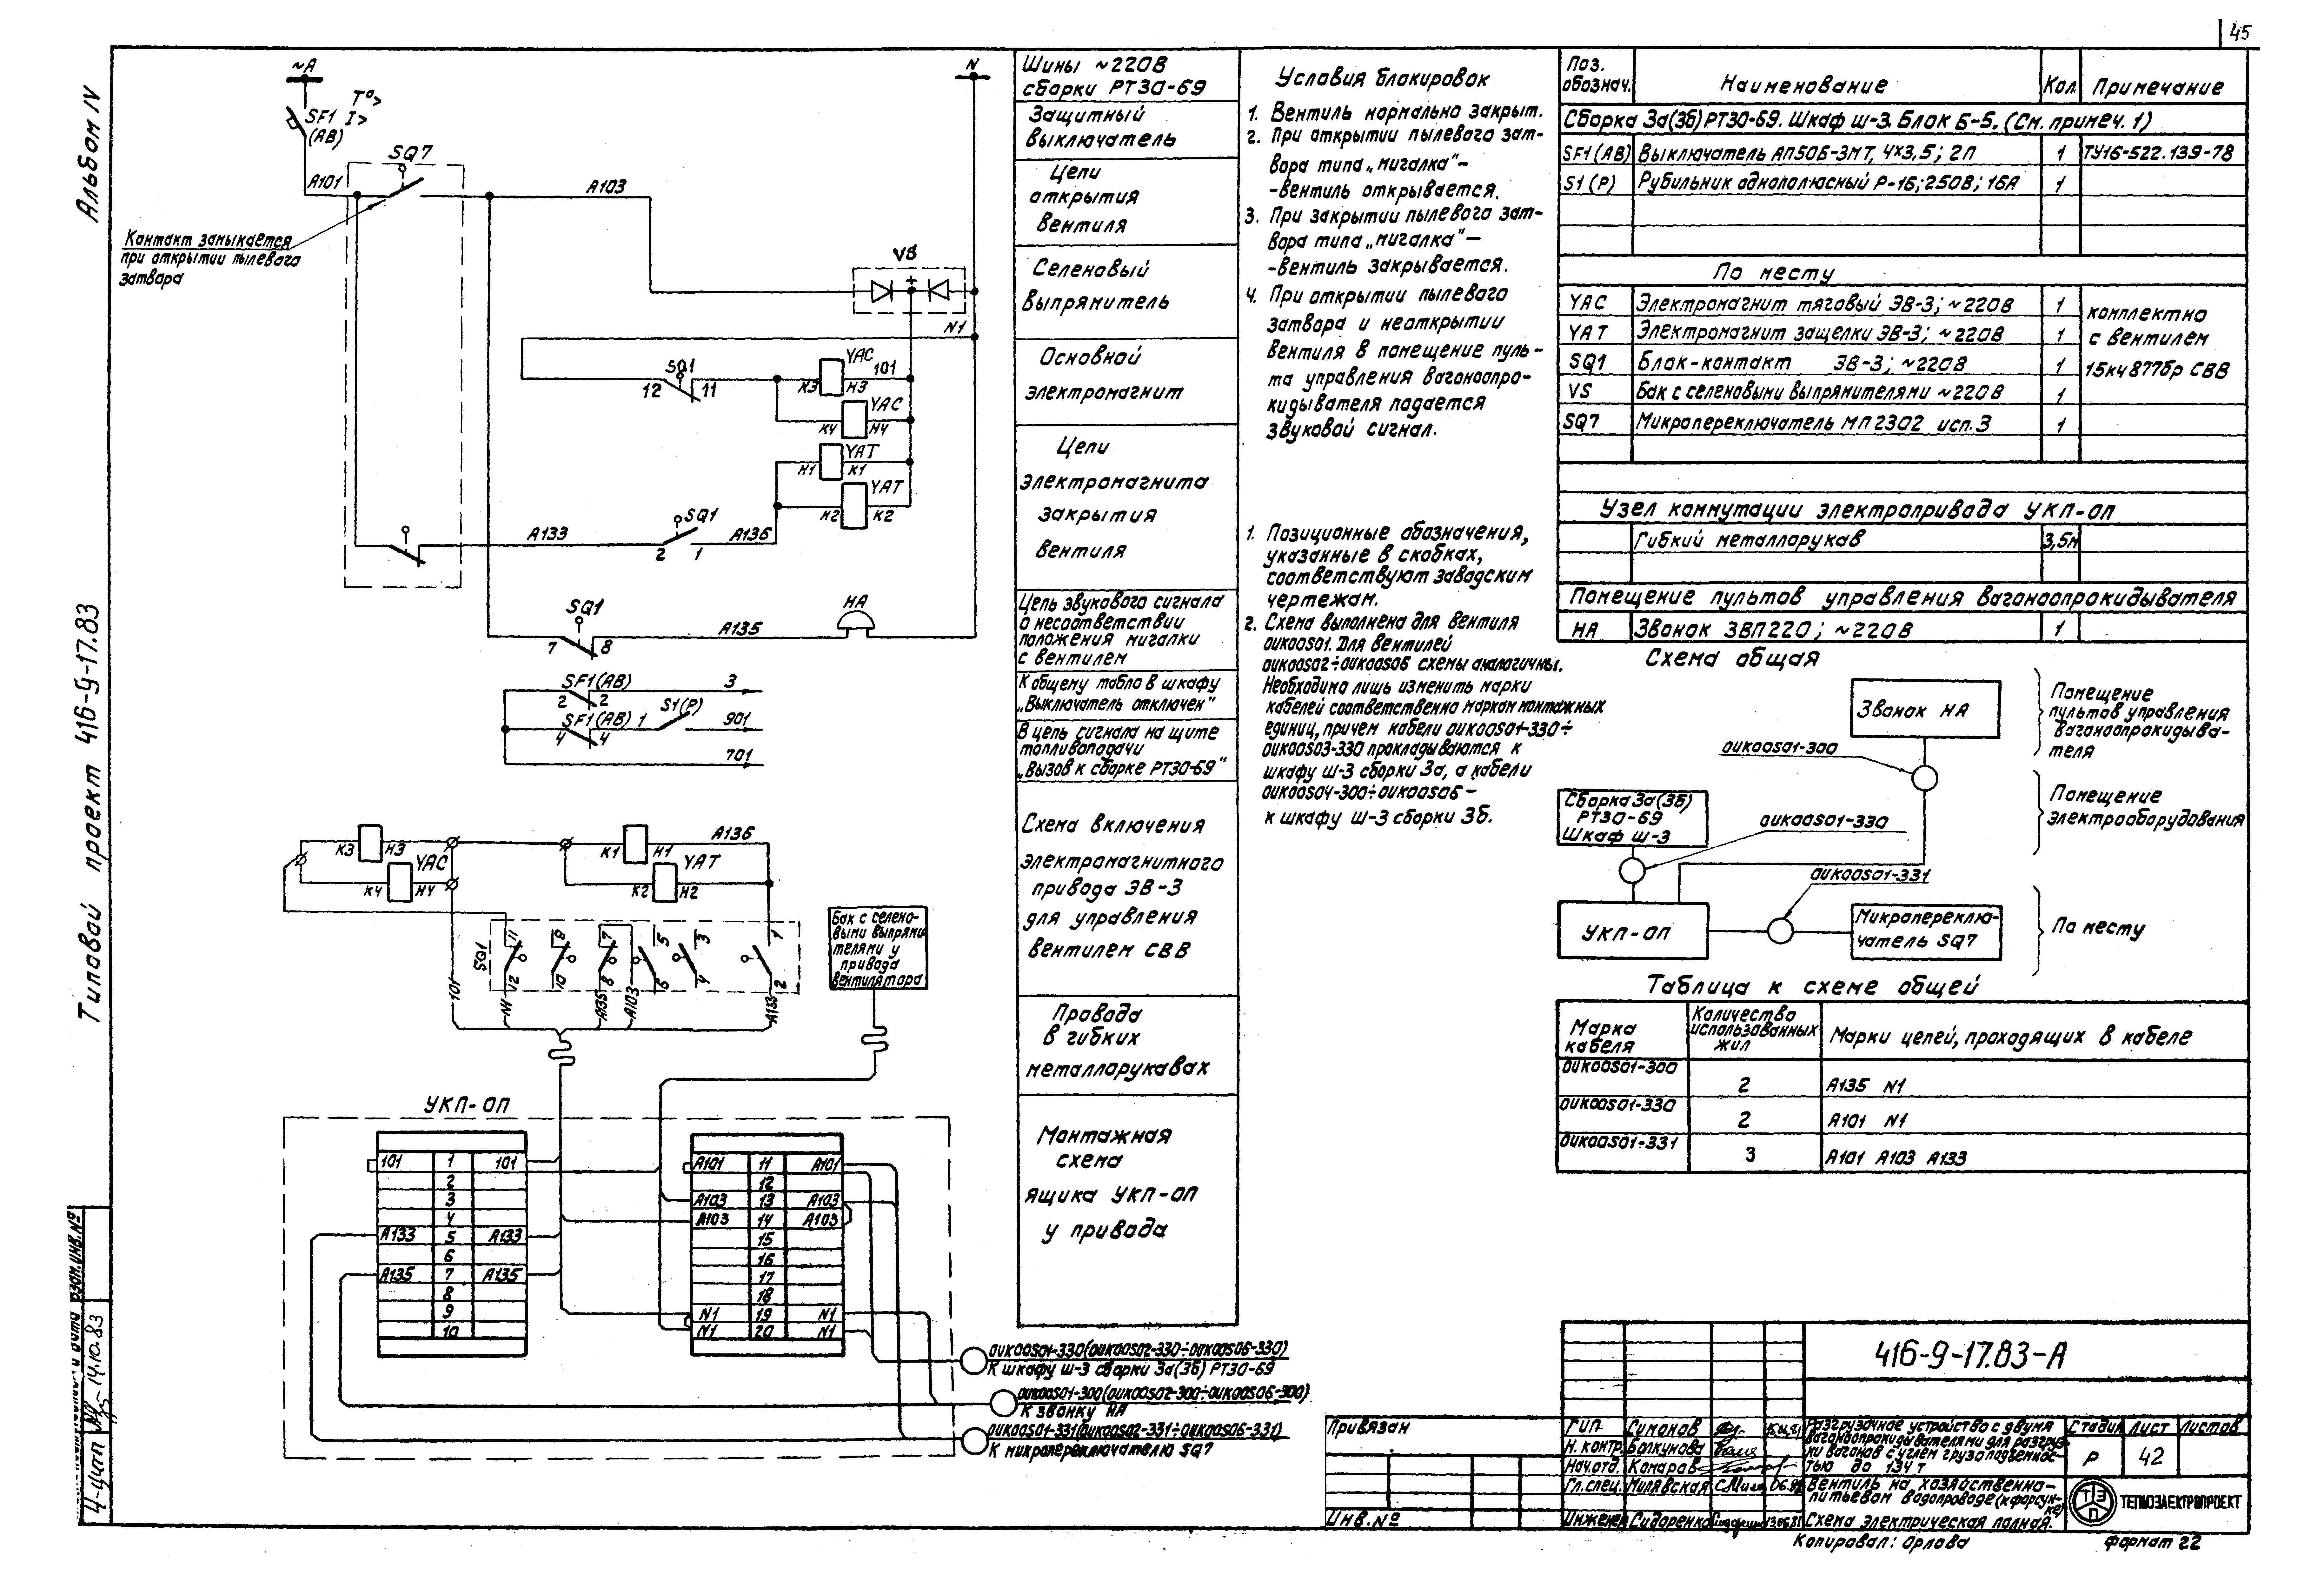 45
Альбом IV
Типовой проект 416-9-17.83
~А
N
SF1
(АВ)
Т°>
I>
SQ7
А101
А103
Контакт замыкается
при открытии пылевого
затвора
VS
+
N1
SQ1
12
11
YAC
К3
Н3
101
YAC
К4
Н4
YAT
Н1
К1
YAT
Н2
К2
А133
SQ1
2
1
А136
SQ1
7
8
А135
НА
SF1(АВ)
2
2
3
SF1(АВ)
4
4
1
S1(Р)
901
701
К3
Н3
YAC
К4
Н4
К1
Н1
YAT
К2
Н2
А136
SQ1
11
9
7
5
3
1
12
10
8
6
4
2
101
N1
А135
А103
А133
Бак с селено-
выми выпрями-
телями у
привода
вентилятора
УКП-ОП
101 1 101
2
3
4
А133 5 А133
6
А135 7 А135
8
9
10
А101 11 А101
12
А103 13 А103
А103 14 А103
15
16
17
18
N1 19 N1
N1 20 N1
0UK00S01-330(0UK00S02-330÷0UK00S06-330)
К шкафу Ш-3 сборки 3а(3б) РТ30-69
0UK00S01-300(0UK00S02-300÷0UK00S06-300)
К звонку НА
0UK00S01-331(0UK00S02-331÷0UK00S06-331)
К микропереключателю SQ7
Шины ~220В
сборки РТ30-69
Защитный
выключатель
Цепи
открытия
вентиля
Селеновый
выпрямитель
Основной
электромагнит
Цепи
электромагнита
закрытия
вентиля
Цепь звукового сигнала
о несоответствии
положения мигалки
с вентилем
К общему табло в шкафу
„Выключатель отключен"
В цепь сигнала на щите
топливоподачи
„Вызов к сборке РТ30-69"
Схема включения
электромагнитного
привода ЭВ-3
для управления
вентилем СВВ
Провода
в гибких
металлорукавах
Монтажная
схема
ящика УКП-ОП
у привода
Условия блокировок
1. Вентиль нормально закрыт.
2. При открытии пылевого зат-
вора типа „мигалка"-
-вентиль открывается.
3. При закрытии пылевого зат-
вора типа „мигалка"-
-вентиль закрывается.
4. При открытии пылевого
затвора и неоткрытии
вентиля в помещение пуль-
та управления вагоноопро-
кидывателя подается
звуковой сигнал.
1. Позиционные обозначения,
указанные в скобках,
соответствуют заводским
чертежам.
2. Схема выполнена для вентиля
0UK00S01. Для вентилей
0UK00S02÷0UK00S06 схемы аналогичны.
Необходимо лишь изменить марки
кабелей соответственно маркам монтажных
единиц, причем кабели 0UK00S01-330÷
0UK00S03-330 прокладываются к
шкафу Ш-3 сборки 3а, а кабели
0UK00S04-300÷0UK00S06-
к шкафу Ш-3 сборки 3б.
Поз. обознач. Наименование Кол. Примечание
Сборка 3а(3б) РТ30-69. Шкаф Ш-3. Блок Б-5. (См. примеч. 1)
SF1(АВ) Выключатель АП50Б-3МТ, 4х3,5; 2П 1 ТУ16-522.139-78
S1(Р) Рубильник однополюсный Р-16; 250В; 16А 1
По месту
YAC Электромагнит тяговый ЭВ-3; ~220В 1 комплектно
YAT Электромагнит защелки ЭВ-3; ~220В 1 с вентилем
SQ1 Блок-контакт ЭВ-3; ~220В 1 15кч877бр СВВ
VS Бак с селеновыми выпрямителями ~220В 1
SQ7 Микропереключатель МП2302 исп.3 1
Узел коммутации электропривода УКП-ОП
Гибкий металлорукав 3,5м
Помещение пультов управления вагоноопрокидывателя
НА Звонок ЗВП220; ~220В 1
Схема общая
Звонок НА
Помещение
пультов управления
вагоноопрокидыва-
теля
0UK00S01-300
Сборка 3а(3б)
РТ30-69
Шкаф Ш-3
0UK00S01-330
Помещение
электрооборудования
0UK00S01-331
УКП-ОП
Микроперeклю-
чатель SQ7
По месту
Таблица к схеме общей
Марка кабеля
Количество использованных жил
Марки цепей, проходящих в кабеле
0UK00S01-300 2 А135 N1
0UK00S01-330 2 А101 N1
0UK00S01-331 3 А101 А103 А133
416-9-17.83-А
Привязан
Инв.№
ГИП Симонов
Н. контр. Балкунова
Нач.отд. Комаров
Гл.спец. Милявская
Инженер Сидоренко 13.06.81
Разгрузочное устройство с двумя
вагоноопрокидывателями для разгруз-
ки вагонов с углем грузоподъемнос-
тью до 134 т
Стадия Лист Листов
Р 42
Вентиль на хозяйственно-
питьевом водопроводе (к форсун-
ке)
Схема электрическая полная.
ТЭП
ТЕПЛОЭЛЕКТРОПРОЕКТ
Копировал: Орлова
Формат 22
Взам.инв.№
14.10.83